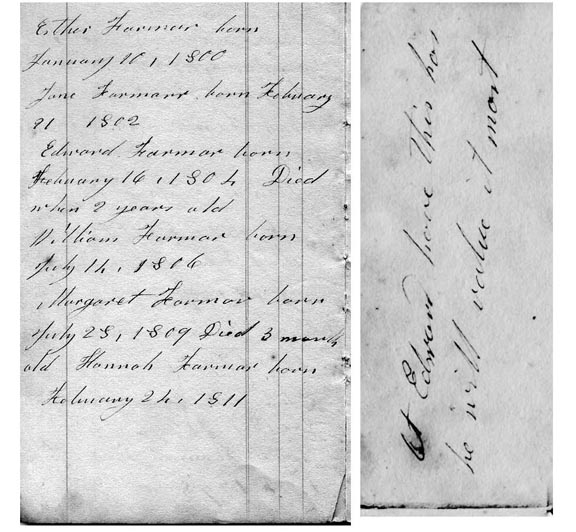 Esther Farmar born
January 10, 1800
Jane Farmarr born February
21 1802
Edward Farmar born
February 16, 1804 Died
when 2 years old
William Farmar born
July 14, 1806
Margaret Farmar born
July 28, 1809 Died 3 month
old Hannah Farmar born
February 24, 1811
Edward have this has
he will value it most